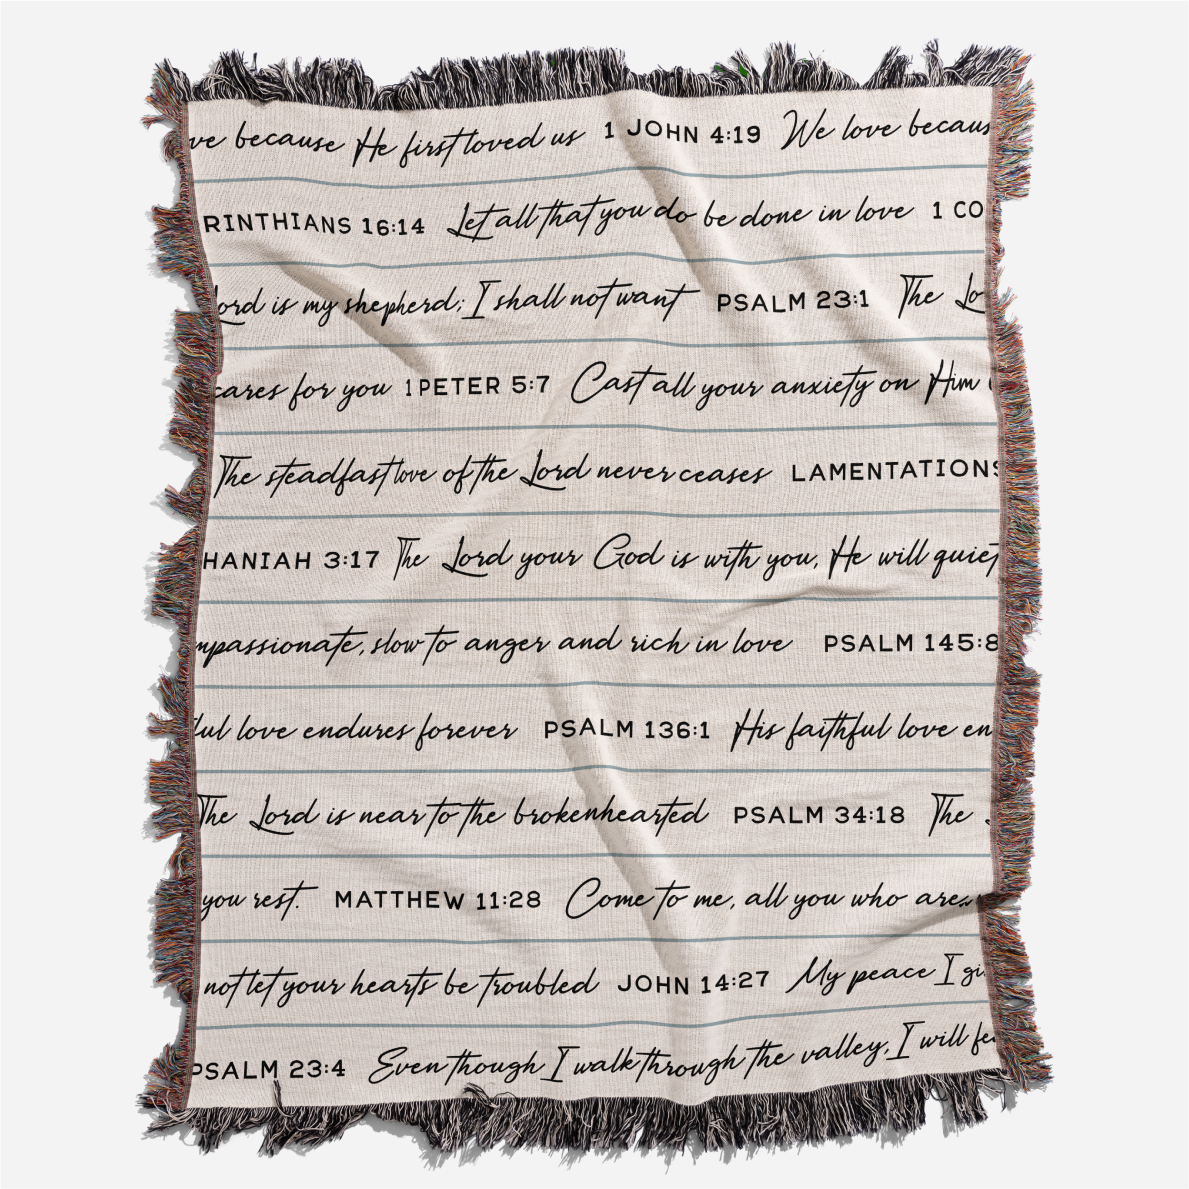 ve because He first loved us 1 JOHN 4:19 We love becaus
RINTHIANS 16:14 Let all that you do be done in love 1 CO
Lord is my shepherd; I shall not want PSALM 23:1 The Lo
cares for you 1 PETER 5:7 Cast all your anxiety on Him
The steadfast love of the Lord never ceases LAMENTATIONS
HANIAH 3:17 The Lord your God is with you, He will quiet
mpassionate, slow to anger and rich in love PSALM 145:8
ful love endures forever PSALM 136:1 His faithful love en
The Lord is near to the brokenhearted PSALM 34:18 The
you rest. MATTHEW 11:28 Come to me, all you who are...
not let your hearts be troubled JOHN 14:27 My peace I gi
PSALM 23:4 Even though I walk through the valley, I will fea